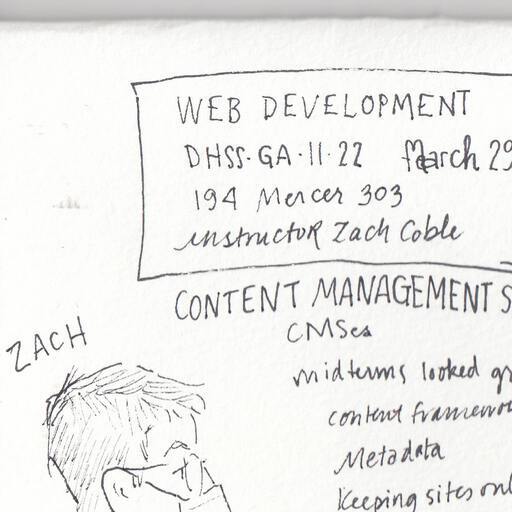 WEB DEVELOPMENT
DHSS·GA·11·22 March 29
194 Mercer 303
instructor Zach Coble
CONTENT MANAGEMENT S
CMSes
ZACH
midterms looked gr
content framewo
Metadata
Keeping sites onl